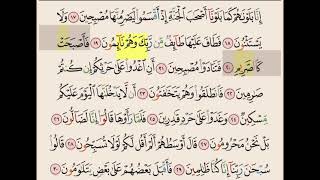 إِنَّا بَلَوْنَٰهُمْ كَمَا بَلَوْنَآ أَصْحَٰبَ ٱلْجَنَّةِ إِذْ أَقْسَمُوا۟ لَيَصْرِمُنَّهَا مُصْبِحِينَ ١٧ وَلَا
يَسْتَثْنُونَ ١٨ فَطَافَ عَلَيْهَا طَآئِفٌ مِّن رَّبِّكَ وَهُمْ نَآئِمُونَ ١٩ فَأَصْبَحَتْ
كَٱلصَّرِيمِ ٢٠ فَتَنَادَوْا۟ مُصْبِحِينَ ٢١ أَنِ ٱغْدُوا۟ عَلَىٰ حَرْثِكُمْ إِن كُنتُمْ
صَٰرِمِينَ ٢٢ فَٱنطَلَقُوا۟ وَهُمْ يَتَخَٰفَتُونَ ٢٣ أَن لَّا يَدْخُلَنَّهَا ٱلْيَوْمَ عَلَيْكُم
مِّسْكِينٌ ٢٤ وَغَدَوْا۟ عَلَىٰ حَرْدٍ قَٰدِرِينَ ٢٥ فَلَمَّا رَأَوْهَا قَالُوٓا۟ إِنَّا لَضَآلُّونَ ٢٦
بَلْ نَحْنُ مَحْرُومُونَ ٢٧ قَالَ أَوْسَطُهُمْ أَلَمْ أَقُل لَّكُمْ لَوْلَا تُسَبِّحُونَ ٢٨ قَالُوا۟
سُبْحَٰنَ رَبِّنَآ إِنَّا كُنَّا ظَٰلِمِينَ ٢٩ فَأَقْبَلَ بَعْضُهُمْ عَلَىٰ بَعْضٍ يَتَلَٰوَمُونَ ٣٠